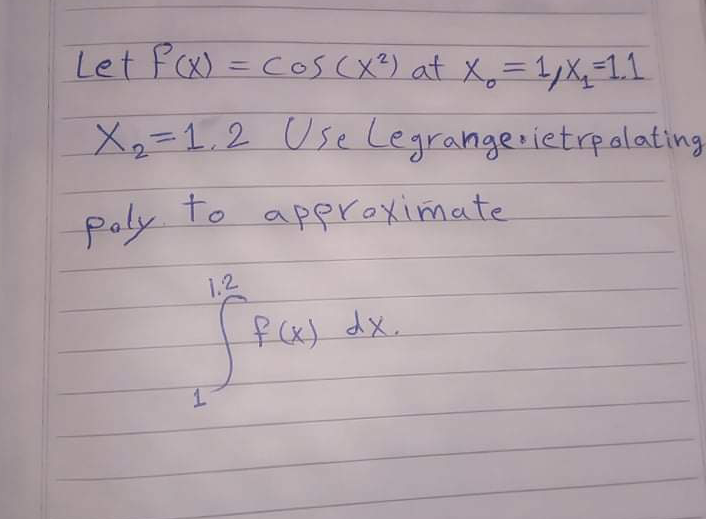 Let f(x) = cos(x²) at x₀=1, x₁=1.1
X₂=1.2 Use Legrange ietrpolating
poly. to approximate
1.2
∫ f(x) dx.
1